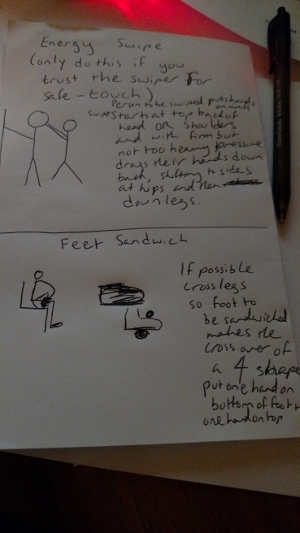 Energy Swipe
(only do this if you
trust the swiper for
safe-touch)
Person to be swiped puts hands
on wall
swiper starts at top back of
head OR shoulders
and with firm but
not too heavy pressure
drags their hands down
back, shifting to sides
at hips and then
down legs.
Feet Sandwich
If possible
cross legs
so foot to
be sandwiched
makes the
cross over of
a 4 shape
put one hand on
bottom of foot +
one hand on top